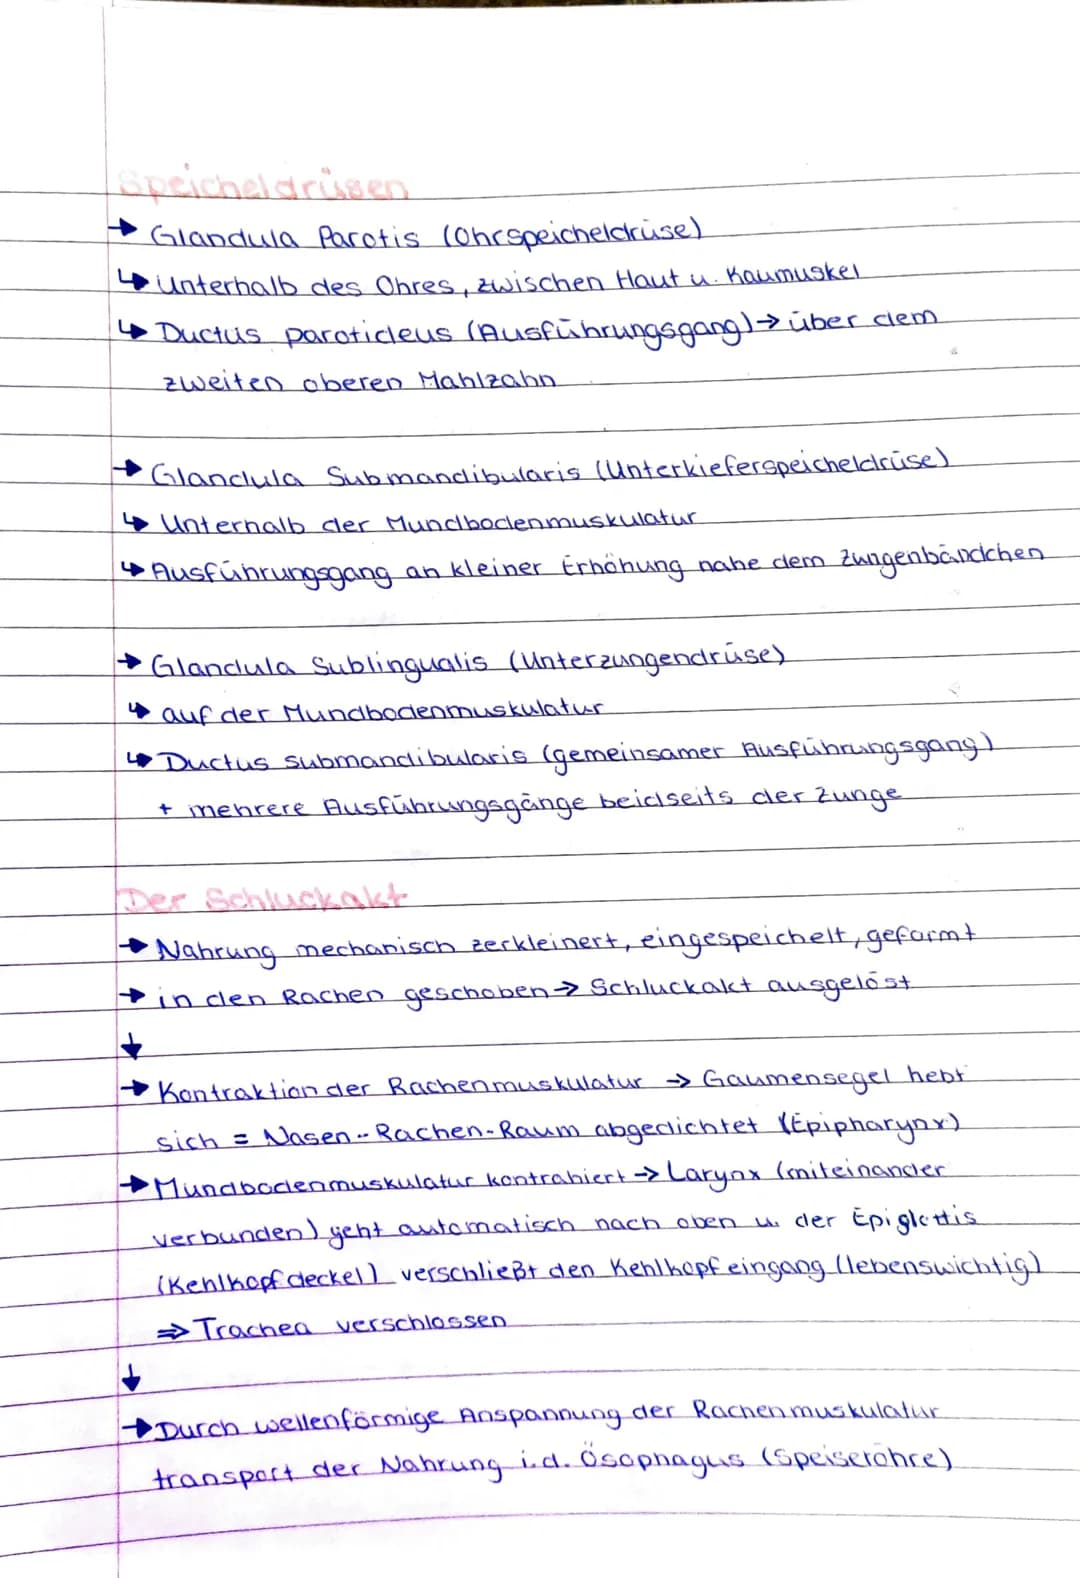 Speicheldrüsen
→ Glandula Parotis (Ohrspeicheldrüse)
↳ Unterhalb des Ohres, zwischen Haut u. Kaumuskel
↳ Ductus paroticleus (Ausführungsgang) → über dem
zweiten oberen Mahlzahn
→ Glandula Submandibularis (Unterkieferspeicheldrüse)
↳ Unterhalb der Mundbodenmuskulatur
↳ Ausführungsgang an kleiner Erhöhung nahe dem Zungenbändchen
→ Glandula Sublingualis (Unterzungendrüse)
↳ auf der Mundbodenmuskulatur
↳ Ductus submandibularis (gemeinsamer Ausführungsgang)
+ mehrere Ausführungsgänge beidseits der Zunge
Der Schluckakt
→ Nahrung mechanisch zerkleinert, eingespeichelt, geformt
→ in den Rachen geschoben → Schluckakt ausgelöst
↓
→ Kontraktion der Rachenmuskulatur → Gaumensegel hebt
sich = Nasen-Rachen-Raum abgedichtet (Epipharynx)
→ Mundbodenmuskulatur kontrahiert → Larynx (miteinander
verbunden) geht automatisch nach oben u. der Epiglottis
(Kehlkopfdeckel) verschließt den Kehlkopfeingang (lebenswichtig)
⇒ Trachea verschlossen
↓
→ Durch wellenförmige Anspannung der Rachenmuskulatur
transport der Nahrung i.d. Ösophagus (Speiseröhre)